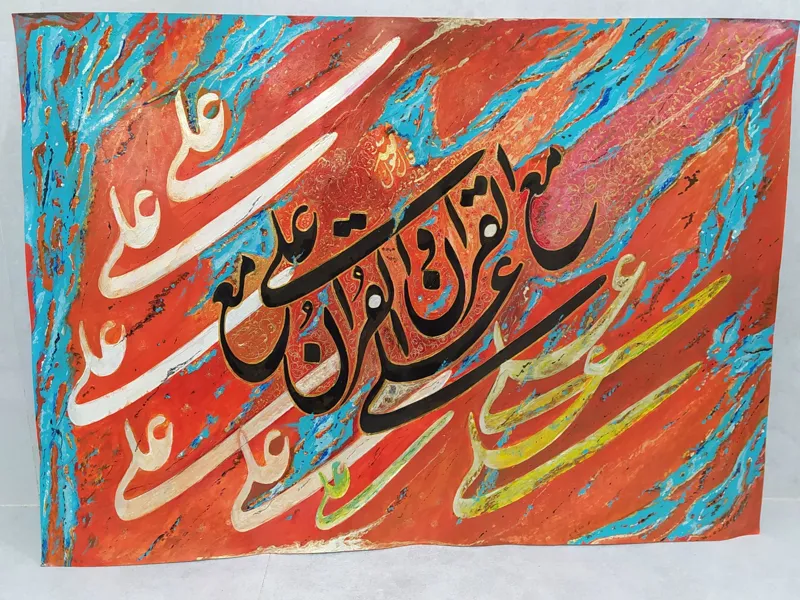 علی
علی
علی مع القران و
القران مع علی
علی
علی
علی
علی
علی
علی
علی